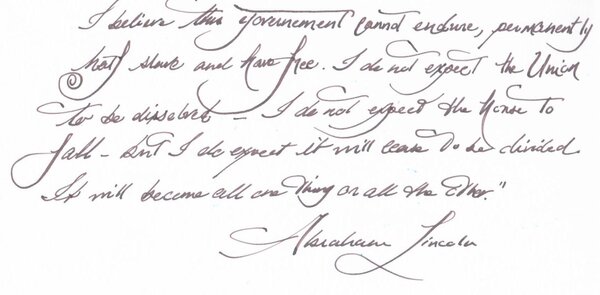 I believe this government cannot endure, permanently
half slave and half free. I do not expect the Union
to be dissolved – I do not expect the House to
fall – but I do expect it will cease to be divided
It will become all one thing or all the other."
Abraham Lincoln